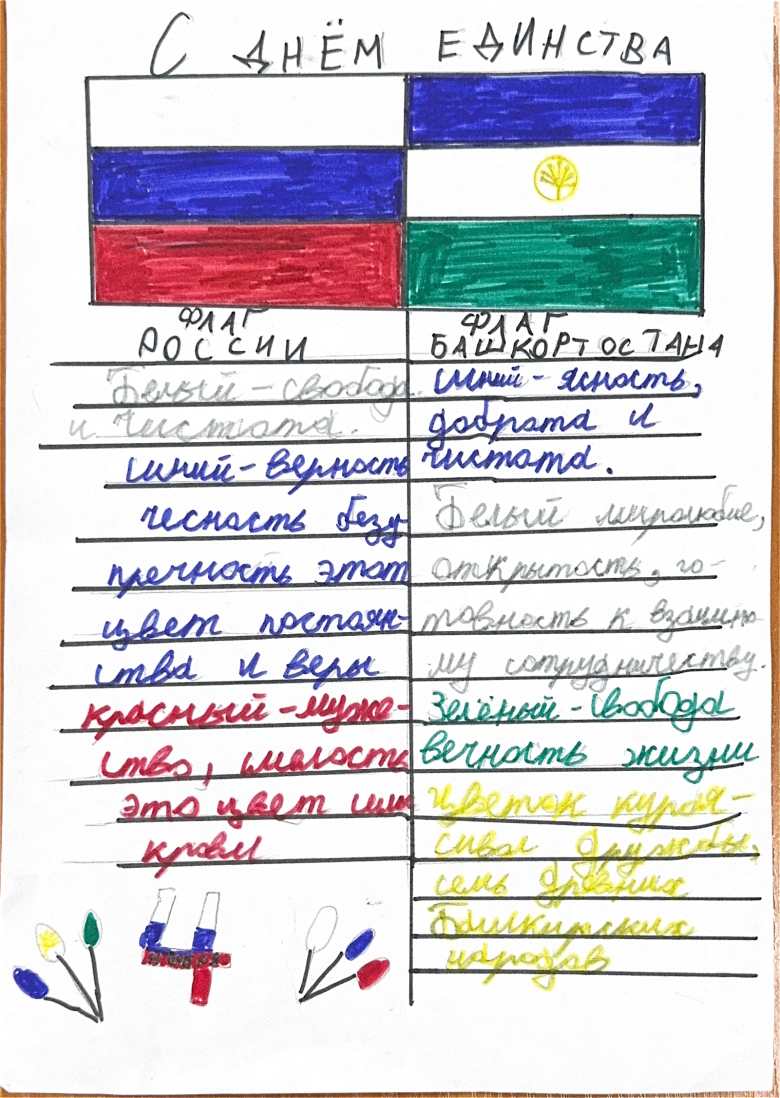 С ДНЁМ ЕДИНСТВА
ФЛАГ
РОССИИ
Белый - свобода
и чистота.
синий - верность
чесность безу-
пречность этот
цвет постоян-
ства и веры
красный - муже-
ство, смелость
это цвет силы
крови
ФЛАГ
БАШКОРТОСТАНА
синий - ясность,
добрата и
чистота.
Белый миролюбие,
открытость, го-
товность к взаимно
му сотрудничеству.
Зелёный - свобода
вечность жизни
Цветок курая -
сивол дружбы,
семь древних
Башкирских
народов
4